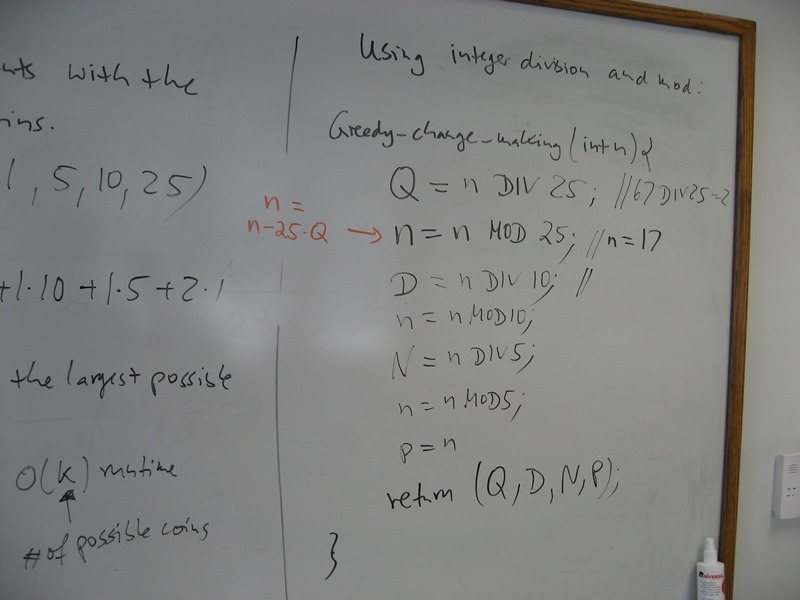 with the
1, 5, 10, 25)
+1·10 +1·5 +2·1
the largest possible
O(k) runtime
# of possible coins
Using integer division and mod:
Greedy-change-making (int n) {
Q = n DIV 25; //67 DIV 25=2
n =
n-25·Q → n = n MOD 25; //n=17
D = n DIV 10; //
n = n MOD 10;
N = n DIV 5;
n = n MOD 5;
P = n
return (Q, D, N, P);
}